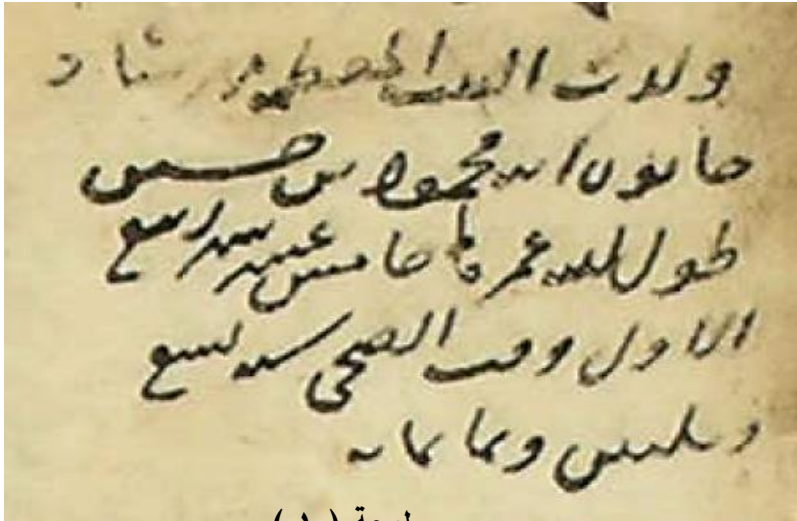 ولادت الست المعظمه شاد
خاتون ابنة محمود بن حسين
طول الله عمرها خامس عشر شهر ربيع
الاول وقت الضحى سنة تسع
وثلثين وثمانمائة